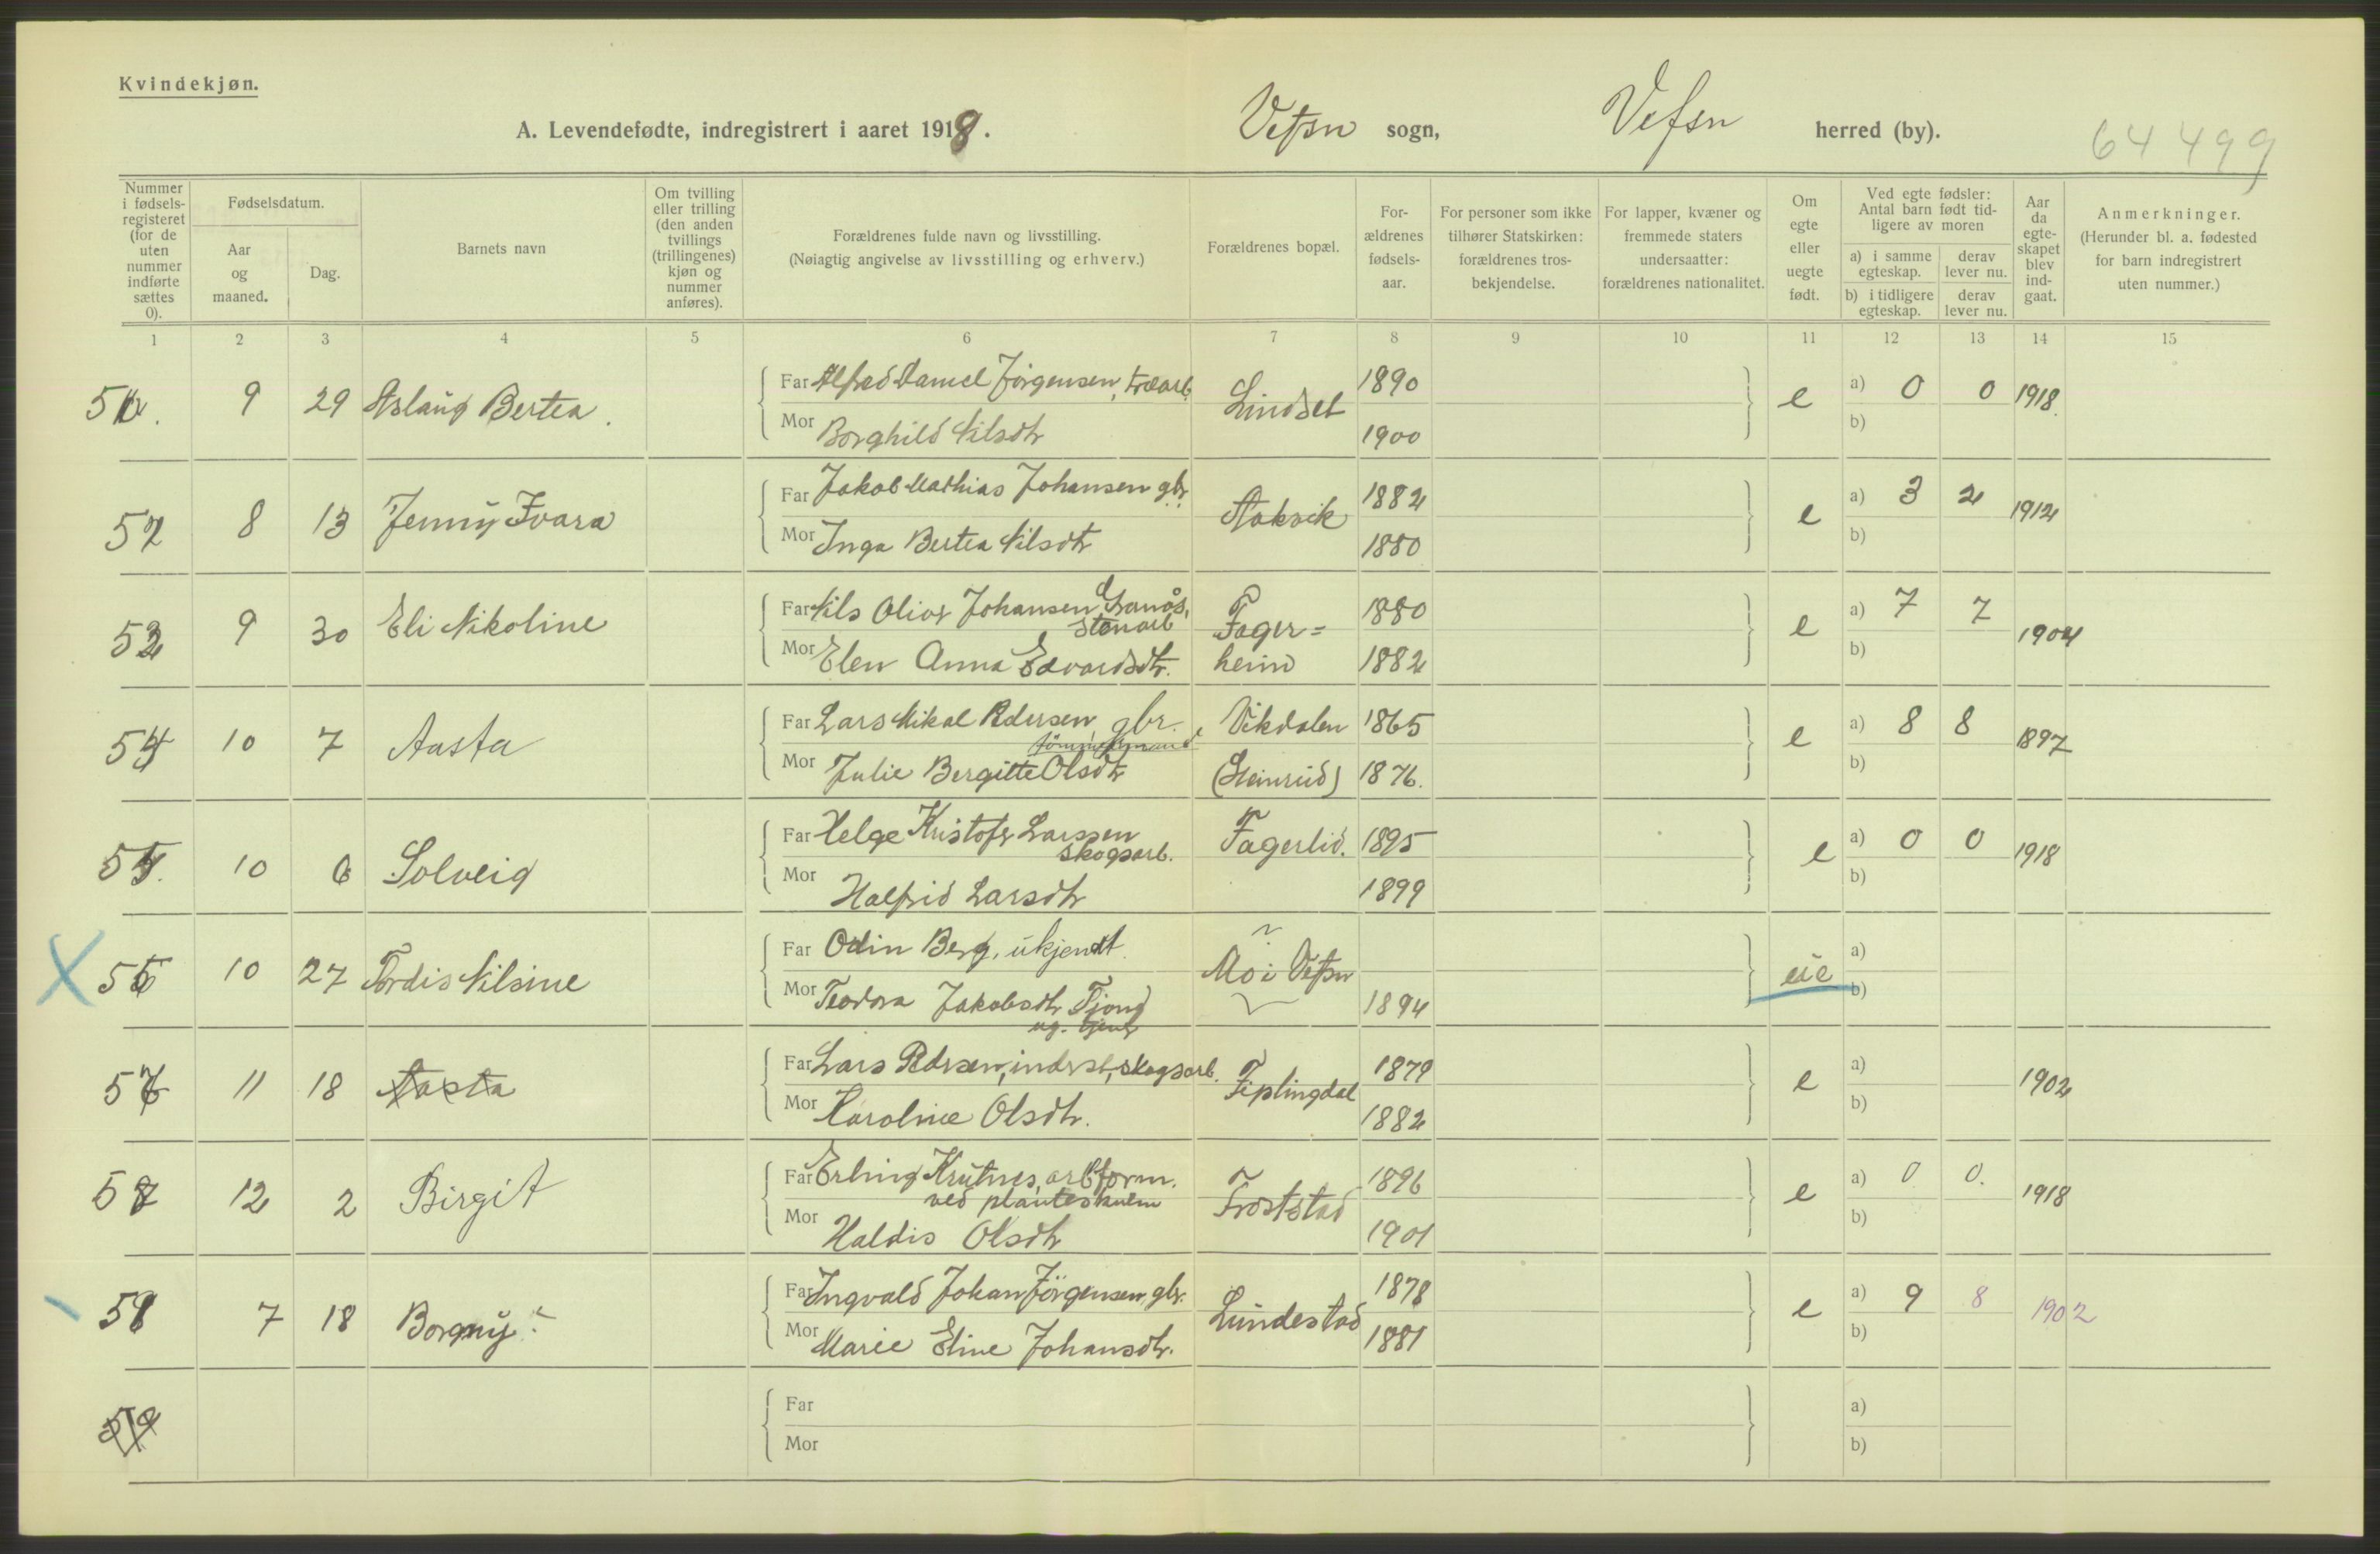 Kvindekjøn.
A. Levendefødte, indregistrert i aaret 1918. Vefsn sogn, Vefsn herred (by). 64 499
Nummer i fødsels-registeret (for de uten nummer indførte sættes 0).
Fødselsdatum.
Aar og maaned.
Dag.
Barnets navn
Om tvilling eller trilling (den anden tvillings (trillingenes) kjøn og nummer anføres).
Forældrenes fulde navn og livsstilling.
(Nøiagtig angivelse av livsstilling og erhverv.)
Forældrenes bopæl.
For-ældrenes fødsels-aar.
For personer som ikke tilhører Statskirken: forældrenes tros-bekjendelse.
For lapper, kvæner og fremmede staters undersaatter: forældrenes nationalitet.
Om egte eller uegte født.
Ved egte fødsler: Antal barn født tid-ligere av moren
a) i samme egteskap.
derav lever nu.
b) i tidligere egteskap.
derav lever nu.
Aar da egte-skapet blev ind-gaat.
Anmerkninger.
(Herunder bl. a. fødested for barn indregistrert uten nummer.)
1 2 3 4 5 6 7 8 9 10 11 12 13 14 15
9 29 Aslaug Bertea. Far Alfred Daniel Jørgensen, træarb. Lindset 1890 e a) 0 0 1918.
Mor Borghild Nilsdtr 1900 b)
8 13 Jenny Ivara Far Jakob Mathias Johansen gbr. 1882 e a) 3 2 1912
Mor Inga Bertea Nilsdtr 1880 b)
9 30 Eli Nikoline Far Nils Oliver Johansen Granås, stenarb Fager= 1880 e a) 7 7 1904
Mor Elen Anna Edvardsdtr. heim 1882 b)
54 10 7 Aasta Far Lars Mikal Pedersen, gbr. tømmermand Vikdalen 1865 e a) 8 8 1897
Mor Julie Bergitte Olsdtr (Steinrud) 1876. b)
10 6 Solveig Far Helge Kristofer Larssen skogsarb. Fagerlid. 1895 e a) 0 0 1918
Mor Halfrid Larsdtr 1899 b)
X 10 27 Tordis Nilsine Far Odin Berg, ukjendt. Mo i Vefsn a)
Mor Teodora Jakobsdtr Tjong ug. tjener 1894 b)
11 18 Aasta Far Lars Pedersen, inderst, skogsarb. Tiplingdal 1879 e a) 1902
Mor Karoline Olsdtr. 1882 b)
12 2 Birgit Far Erling Krutnes, arb.form. ved planteskulen Troststad 1896 e a) 0 0. 1918
Mor Haldis Olsdtr 1901 b)
7 18 Borgny Far Ingvald Johan Jörgensen, gbr. Lundestad 1878 e a) 9 8 1902
Mor Marie Eline Johansdtr. 1881 b)
59 Far a)
Mor b)